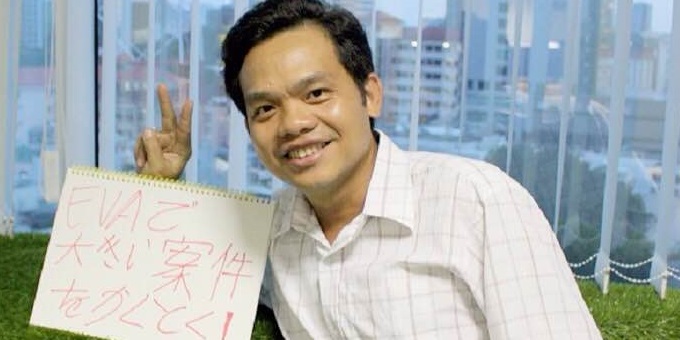 EVAで
大きい案件
をかくとく!